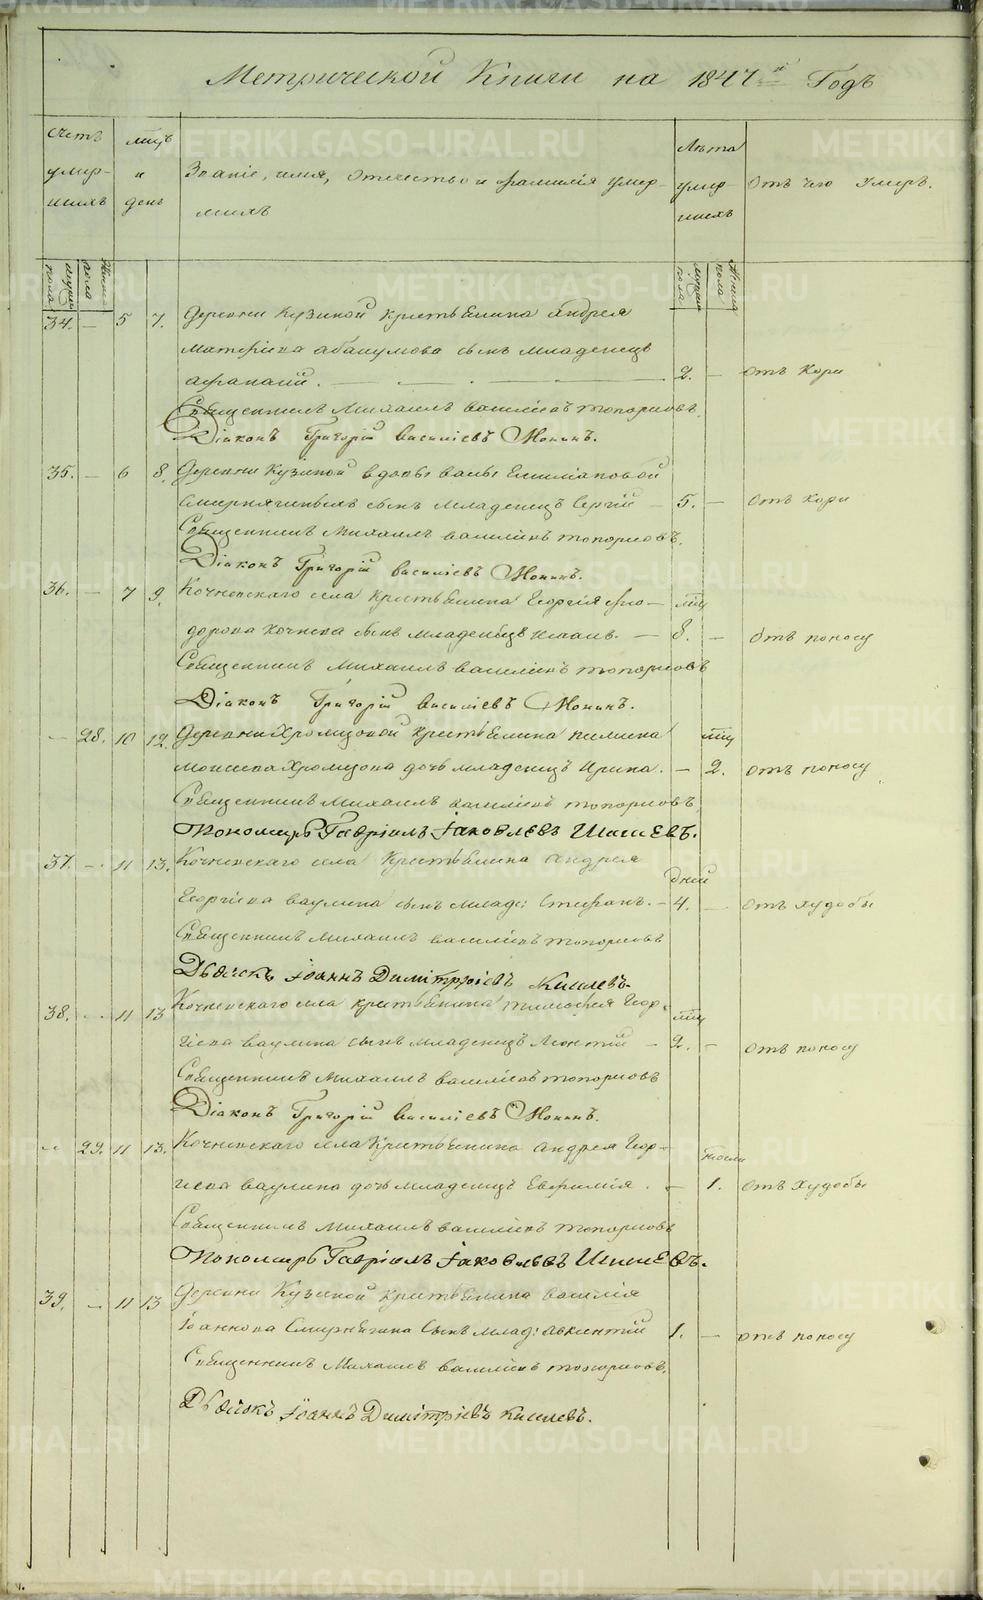 Метрической Книги на 1847й Годъ
Счетъ умершихъ
мцъ и день
Званіе, имя, отечество и фамилія умершихъ
Лѣта умершихъ
Отъ чего умеръ.
мужска пола
Женска пола
мужска пола
Женска пола
34. — 5 7. Деревни Кузиной крестьянина Андрея
Матфіева Абакумова сынъ младенецъ
Афанасій. — 2. — отъ Кори
Священникъ Михаилъ Васильевъ Топорковъ.
Діаконъ Григорій Васильевъ
35. — 6 8. Деревни Кузиной вдовы
сынъ младенецъ Сергій — 5. — отъ Кори
Священникъ Михаилъ Васильевъ Топорковъ.
Діаконъ Григорій Василіевъ
36. — 7 9. Кочневскаго села крестьянина Георгія Фео- мцъ
дорова Кочнева сынъ младенецъ — 8. — отъ поносу
Священникъ Михаилъ Васильевъ Топорковъ
Діаконъ Григорій Василіевъ
— 28. 10 12. Деревни Хромцовой крестьянина мцъ
Моисеева Хромцова дочь младенецъ Ирина. — 2. отъ поносу
Священникъ Михаилъ Васильевъ Топорковъ
Пономарь Гавріилъ Іаковлевъ Шишевъ.
37. — 11 13. Кочневскаго села Крестьянина Андрея дней
Георгіева Ваулина сынъ млад: Стефанъ. — 4. — отъ худобы
Священникъ Михаилъ Васильевъ Топорковъ
Дьячекъ Іоаннъ Димитріевъ Киселевъ.
38. — 11 13 Кочневскаго села крестьянина Тимофея Геор- мцъ
гіева Ваулина сынъ младенецъ Леонтій — 2. — отъ поносу
Священникъ Михаилъ Васильевъ Топорковъ
Діаконъ Григорій Василіевъ
— 29. 11 13. Кочневскаго села Крестьянина Андрея Геор-
гіева Ваулина дочь младенецъ Евфимія. — 1. отъ худобы
Священникъ Михаилъ Васильевъ Топорковъ
Пономарь Гавріилъ Іаковлевъ Шишевъ.
39. — 11 13 Деревни Кузиной крестьянина Василія
Іоаннова Смирнягина сынъ млад: Авксентій 1. — отъ поносу
Священникъ Михаилъ Васильевъ Топорковъ.
Дьячекъ Іоаннъ Димитріевъ Киселевъ.
METRIKI.GASO-URAL.RU